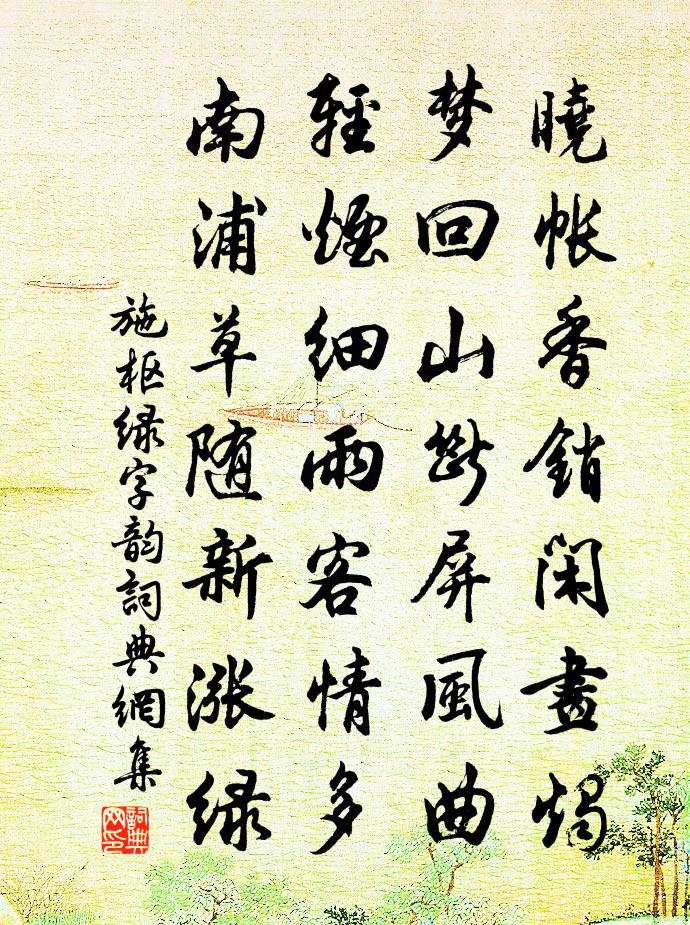 曉帳香銷閑畫燭
梦回山斷屏風曲
輕煙細雨客情多
南浦草随新漲緑
施枢緑字韵詞典網集
詞典网印